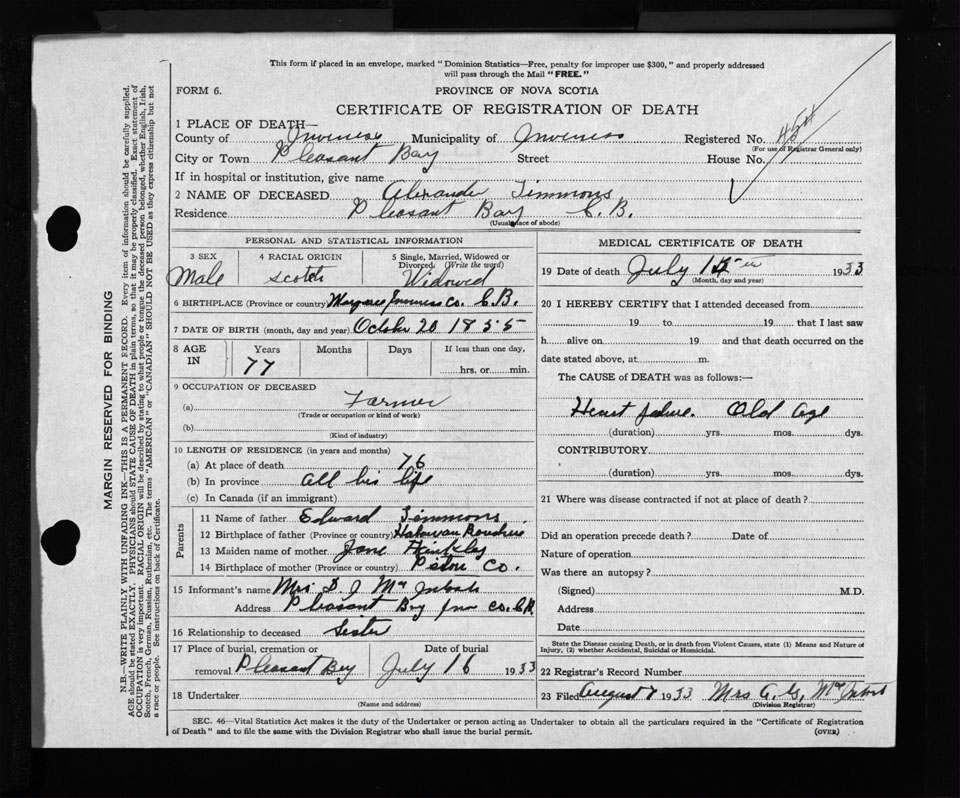 This form if placed in an envelope, marked "Dominion Statistics—Free, penalty for improper use $300," and properly addressed
will pass through the Mail "FREE."
FORM 6.
PROVINCE OF NOVA SCOTIA
CERTIFICATE OF REGISTRATION OF DEATH
1 PLACE OF DEATH—
County of Inverness Municipality of Inverness Registered No.
(For use of Registrar General only)
City or Town Pleasant Bay Street House No.
If in hospital or institution, give name
2 NAME OF DECEASED Alexander Timmons
Residence Pleasant Bay C.B.
(Usual place of abode)
PERSONAL AND STATISTICAL INFORMATION
3 SEX 4 RACIAL ORIGIN 5 Single, Married, Widowed or
Divorced. (Write the word)
Male Scotch Widowed
6 BIRTHPLACE (Province or country) Margaree Inverness Co. C.B.
7 DATE OF BIRTH (month, day and year) October 20 1855
8 AGE
IN
Years Months Days If less than one day,
77 hrs. or min.
9 OCCUPATION OF DECEASED
(a) Farmer
(Trade or occupation or kind of work)
(b)
(Kind of industry)
10 LENGTH OF RESIDENCE (in years and months)
(a) At place of death 76
(b) In province all his life
(c) In Canada (if an immigrant)
Parents
11 Name of father Edward Timmons
12 Birthplace of father (Province or country)
13 Maiden name of mother Jane
14 Birthplace of mother (Province or country) Pictou Co.
15 Informant's name Mrs D J
Address Pleasant Bay Inv Co. C.B.
16 Relationship to deceased Sister
17 Place of burial, cremation or Date of burial
removal Pleasant Bay July 16 1933
18 Undertaker
(Name and address)
MEDICAL CERTIFICATE OF DEATH
19 Date of death July 15th 1933
(Month, day and year)
20 I HEREBY CERTIFY that I attended deceased from
19 to 19 that I last saw
h alive on 19 and that death occurred on the
date stated above, at m.
The CAUSE of DEATH was as follows:—
Heart failure. Old age
(duration) yrs. mos. dys.
CONTRIBUTORY
(duration) yrs. mos. dys.
21 Where was disease contracted if not at place of death?
Did an operation precede death? Date of
Nature of operation
Was there an autopsy?
(Signed) M.D.
Address
Date
State the Disease causing Death, or in death from Violent Causes, state (1) Means and Nature of
Injury, (2) whether Accidental, Suicidal or Homicidal.
22 Registrar's Record Number
23 Filed August 7 1933 Mrs A. G.
(Division Registrar)
SEC. 46—Vital Statistics Act makes it the duty of the Undertaker or person acting as Undertaker to obtain all the particulars required in the "Certificate of Registration
of Death" and to file the same with the Division Registrar who shall issue the burial permit.
(OVER)
MARGIN RESERVED FOR BINDING
N.B.—WRITE PLAINLY WITH UNFADING INK—THIS IS A PERMANENT RECORD. Every item of information should be carefully supplied.
AGE should be stated EXACTLY. PHYSICIANS should STATE CAUSE OF DEATH in plain terms, so that it may be properly classified. Exact statement of
OCCUPATION is very important. RACIAL ORIGIN will be described by stating to what people or tongue the deceased person belonged, whether English, Irish,
Scotch, French, German, Russian, Ruthenian, etc. The terms "AMERICAN" or "CANADIAN" SHOULD NOT BE USED as they express citizenship but not
a race or people. See instructions on back of Certificate.